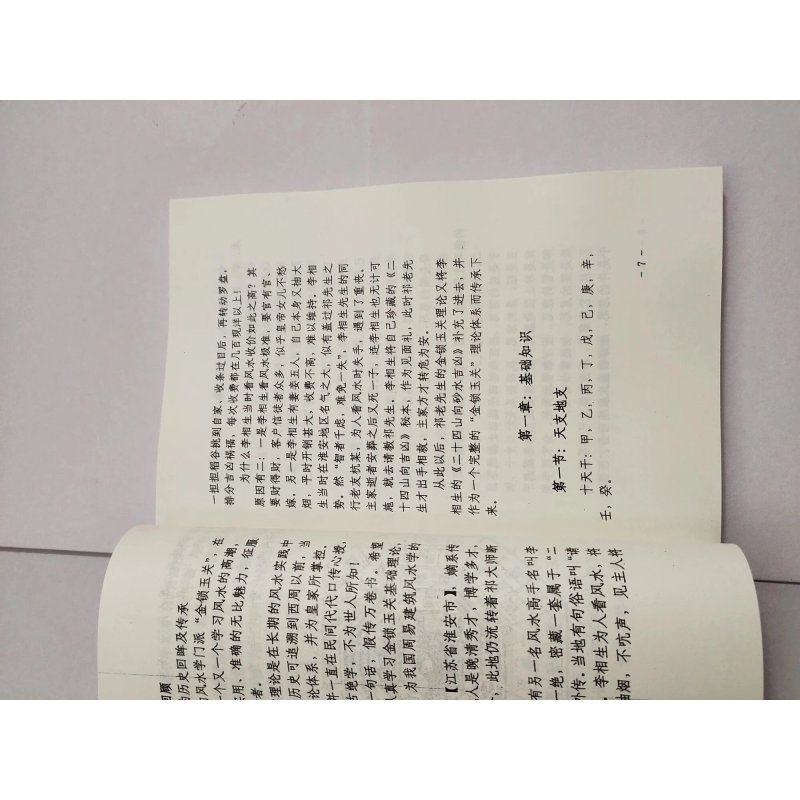 回顾
为历史回眸及传承
的风水学门派“金锁玉关”，在
一个又一个学习风水的高潮，
实用、准确的无比魅力，征服
者。
理论是在长期的风水实践中
历史可追溯到西周以前，当
论体系，并为皇家所掌控。
并一直在民间代代口传心授，
古绝学，不为世人所知！
一句话，假传万卷书。希望
认真学习金锁玉关基础理论，
为我国周易建筑风水学的
【江苏省淮安市】，嫡系传
人是晚清秀才，博学多才，
，此地仍流转着祁大师断
有另一名风水高手名叫李
一绝，密藏一套属于“二
外传。当地有句俗语叫“请
李相生为人看风水，将
抽烟，不吭声，见主人将
一担担稻谷挑到自家、收条过目后，再转动罗盘，
排分吉凶祸福，每次收费都在几百现洋以上！
为什么李相生当时看风水收价如此之高？其
原因有二：一是李相生看风水极准，要官有官、
要财得财，客户信徒者众多，似乎皇帝女儿不愁
嫁。另一是李相生有妻妾五人，自己本身又抽大
烟，平时开销甚大，收费不高，难以维持。李相
生当时在淮安地区名气之大，似有盖过祁先生之
势。然“智者千虑，难免一失”，李相生先生的同
行老友杭某，为人看风水时失手，遇到了重丧。
主家逝者安葬之后又死一子，连李相生也无计可
施，就去请教祁先生。李相生将自己珍藏的《二
十四山向吉凶》秘本，作为见面礼，此时祁老先
生才出手相救，主家方才转危为安。
从此以后，祁老先生的金锁玉关理论又将李
相生的《二十四山向砂水吉凶》补充了进去，并
作为一个完整的“金锁玉关”理论体系而传承下
来。
第一章：基础知识
第一节：天支地支
十天干：甲，乙，丙，丁，戊，己，庚，辛，
壬，癸。
- 7 -